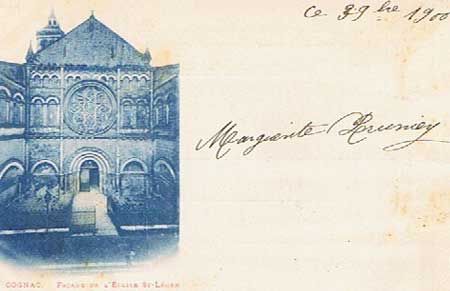 Ce 3 9bre 1900
Marguerite
COGNAC. FAÇADE DE L'ÉGLISE ST-LÉGER